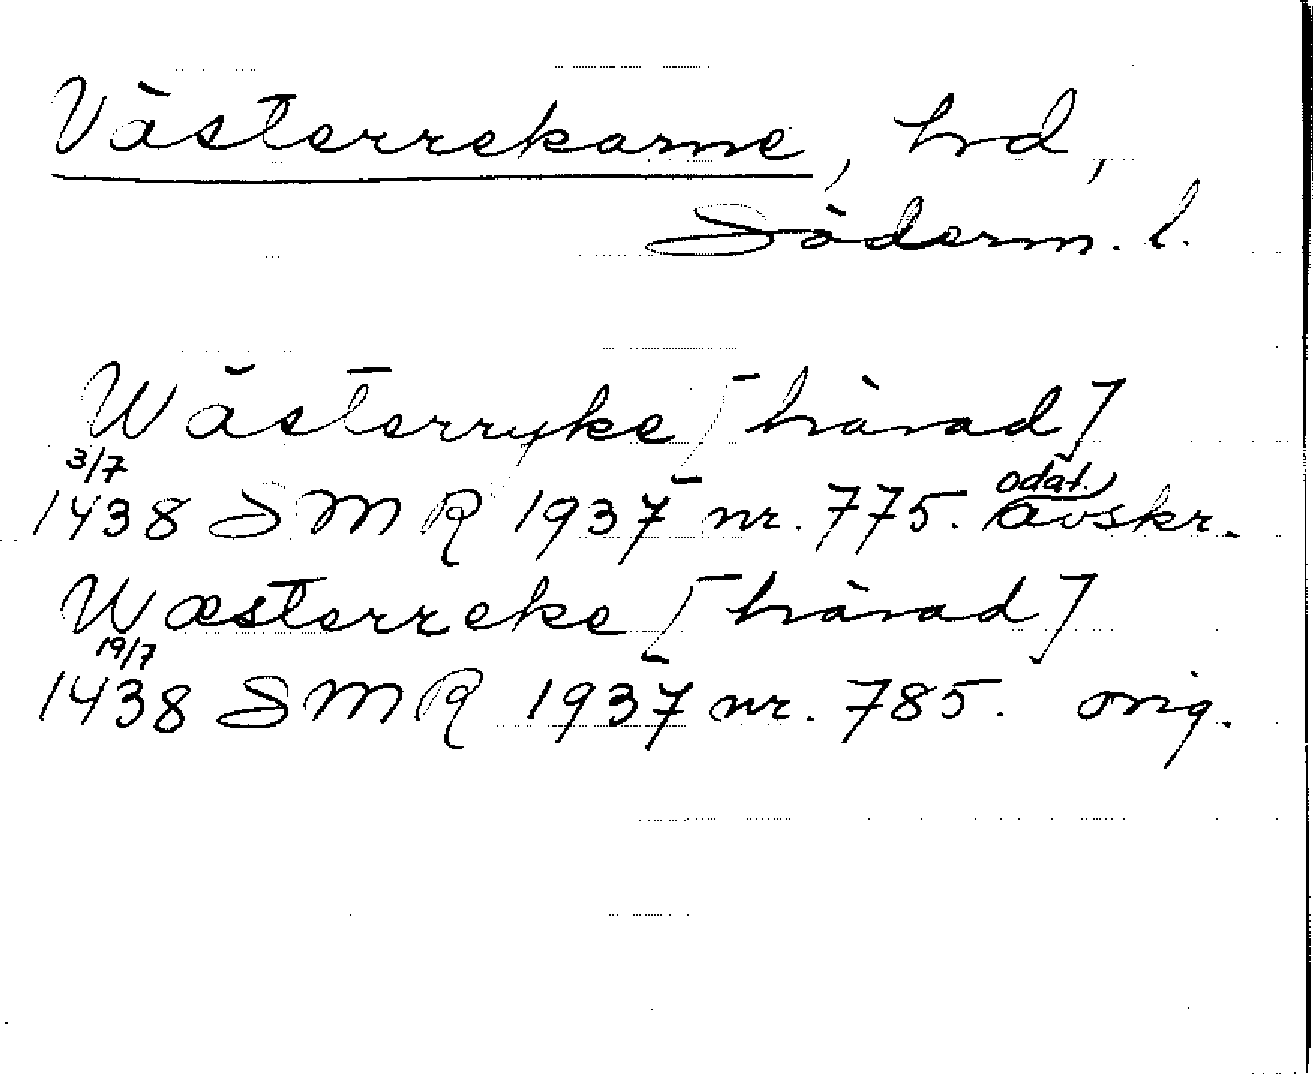 Västerrekarne, hrd,
Söderm. l.
Wästerryke [härad]
3/7
odat.
1438 SMR 1937 nr. 775. avskr.
Wæsterreke [härad]
19/7
1438 SMR 1937 nr. 785. orig.